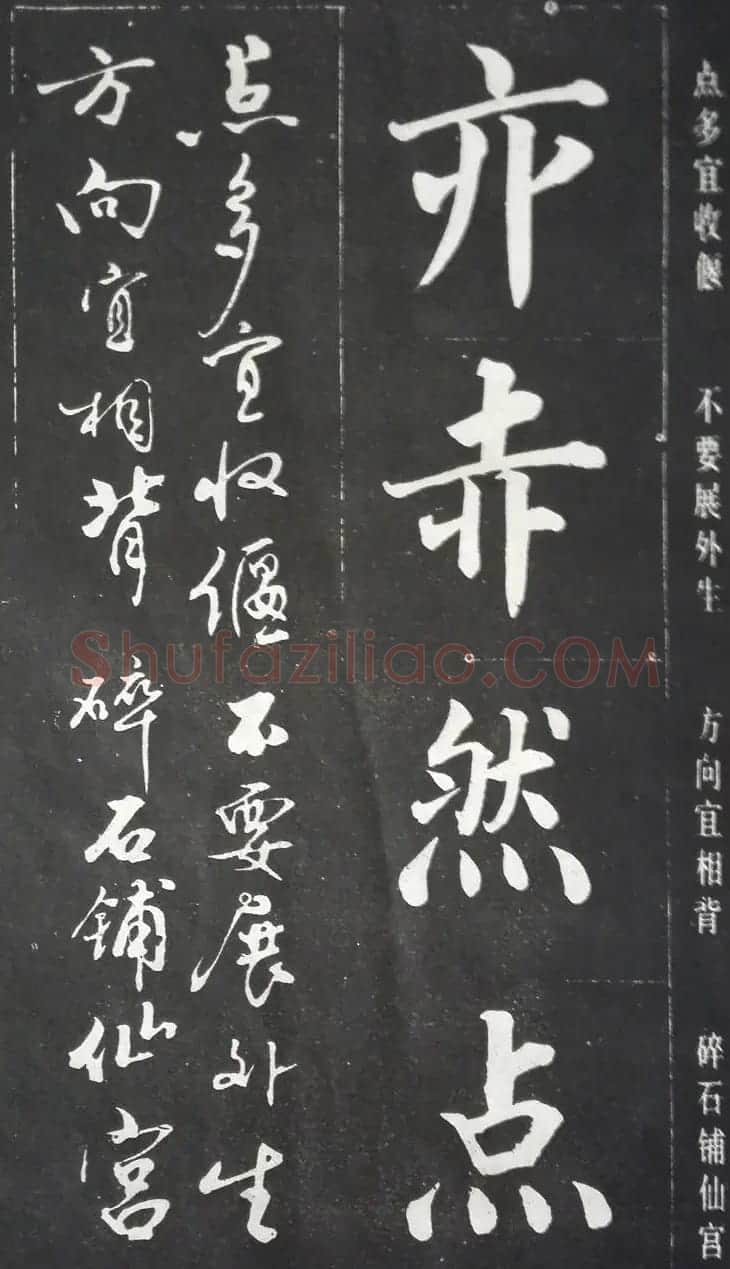 点多宜收偃 不要展外生 方向宜相背 碎石铺仙宫
亦赤然点
点多宜收偃不要展外生
方向宜相背碎石鋪仙宫
Shufaziliao.COM